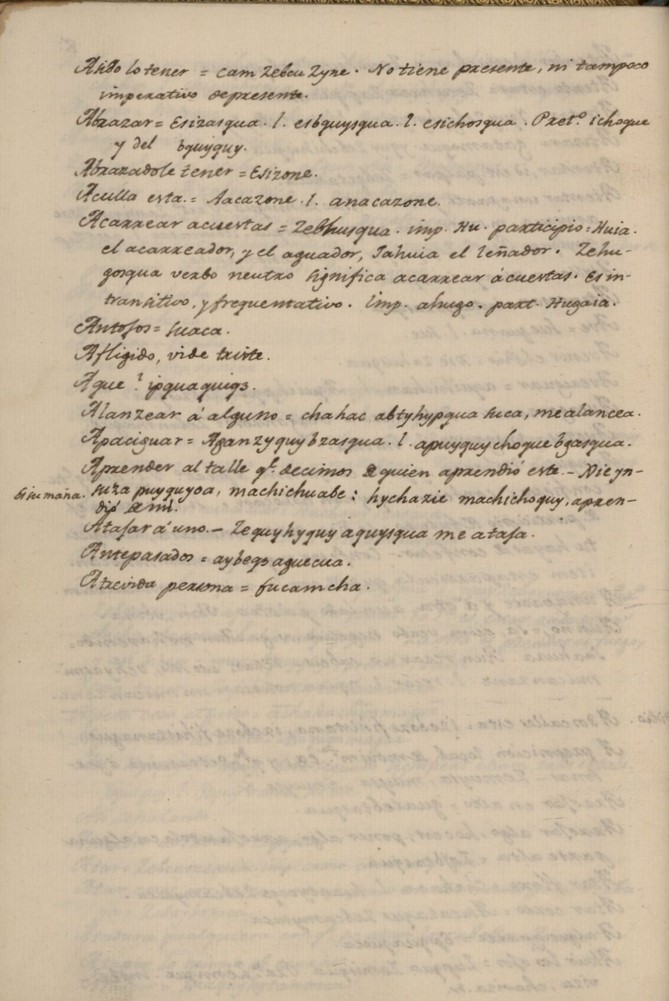 Asido lo tener = cam zebcu zyne. No tiene presente, ni tampoco
imperativo de presente.
Abrazar = Esizasqua. l. esbquysqua. l. esichosqua. Pret.o ichoque
y del bquyquy.
Abrazadole tener = Esizone.
Aculla esta. = Aacazone. l. anacazone.
Acarrear acuestas = Zebhusqua. imp. Hu. participio: Huia.
el acarreador, y el aguador, Iahuia el leñador. Zehu-
gosqua verbo neutro significa acarrear ácuestas. Es in-
transitivo, y frequentativo. Imp. ahugo. part. Hugaia.
Antojos = suaca.
Afligido, vide triste.
A que? ipquaquigs.
Alanzear á alguno = chahac abtyhypqua suca, me alancea.
Apaciguar = Aganzyquybzasqua. l. apuyquychoque bgasqua.
Aprender al talle q.e decimos de quien aprendió este. - Nieyn-
si su maña. suza puyquyoa, machichuabe: hychazie machichoquy, apren-
dió de mi.
Atajar á uno. - Ze quyhyquy aquysqua me ataja.
Antepasados = aybegs aguecua.
Atrevida persona = fucamcha.